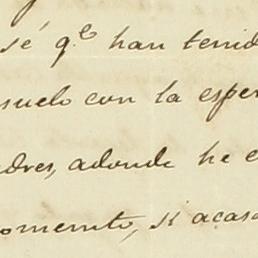 sé q.e han tenid
suelo con la esper
dres, adonde he e
omento, si acaso